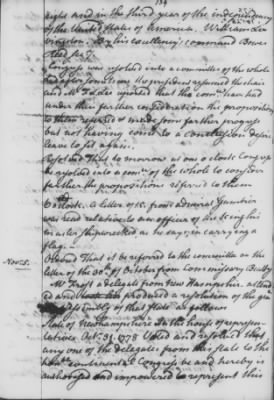 134
eight and in the third year of the independency
of the United States of America. William Li-
vingston. By his excellencys command Bowes
Reed Sect.
Congress was resolved into a committee of the whole
and after some time the president resumed the chair
and Mr reported that the come. have had
under their farther consideration the proposition
to them referred & made some farther progress
but not having come to a conclusion desire
leave to sit again.
Resolved That to morrow at one o clock Congress
be resolved into a come. of the whole to consider
farther the propositions referred to them
A letter of from admiral Gambier
was read relative to an officer of the
master shipwrecked as he says in carrying a
flag.
Ordered That it be referred to the committee on the
Nov. 5.
letter of the 30th of October from Commissary Beatty
Mr Frost a delegate from New Hampshire attend
ed and produced a resolution of the gen
assembly of that state as follows
State of Newhampshire In the house of represen-
tatives Oct. 31. 1778 Voted and resolved that
any one of the delegates from this state to the
honble. continental Congress be and hereby is
authorised and impowered to represent this